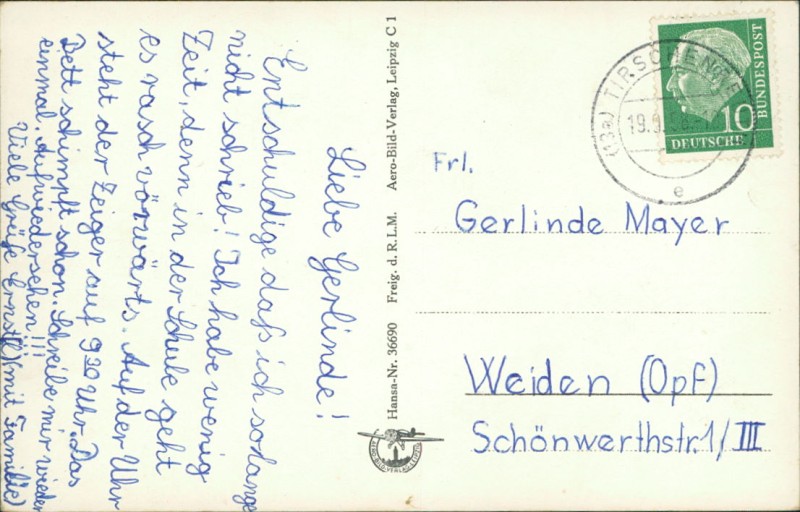 Liebe Gerlinde!
Entschuldige daß ich so lange
nicht schrieb! Ich habe wenig
Zeit, denn in der Schule geht
es rasch vorwärts. Auf der Uhr
steht der Zeiger auf 920 Uhr. Das
Bett schimpft schon. Schreibe mir wieder
einmal. Aufwiedersehen!!!
Viele Grüße Ernst(l) (mit Familie)
Hansa-Nr. 36690 Freig. d. R.L.M. Aero-Bild-Verlag, Leipzig C 1
AERO-BILD-VERLAG LEIPZIG
(13a) TIRSCHENREUTH
19.9.
e
10
DEUTSCHE
BUNDESPOST
Frl.
Gerlinde Mayer
Weiden (Opf)
Schönwerthstr. 1/III